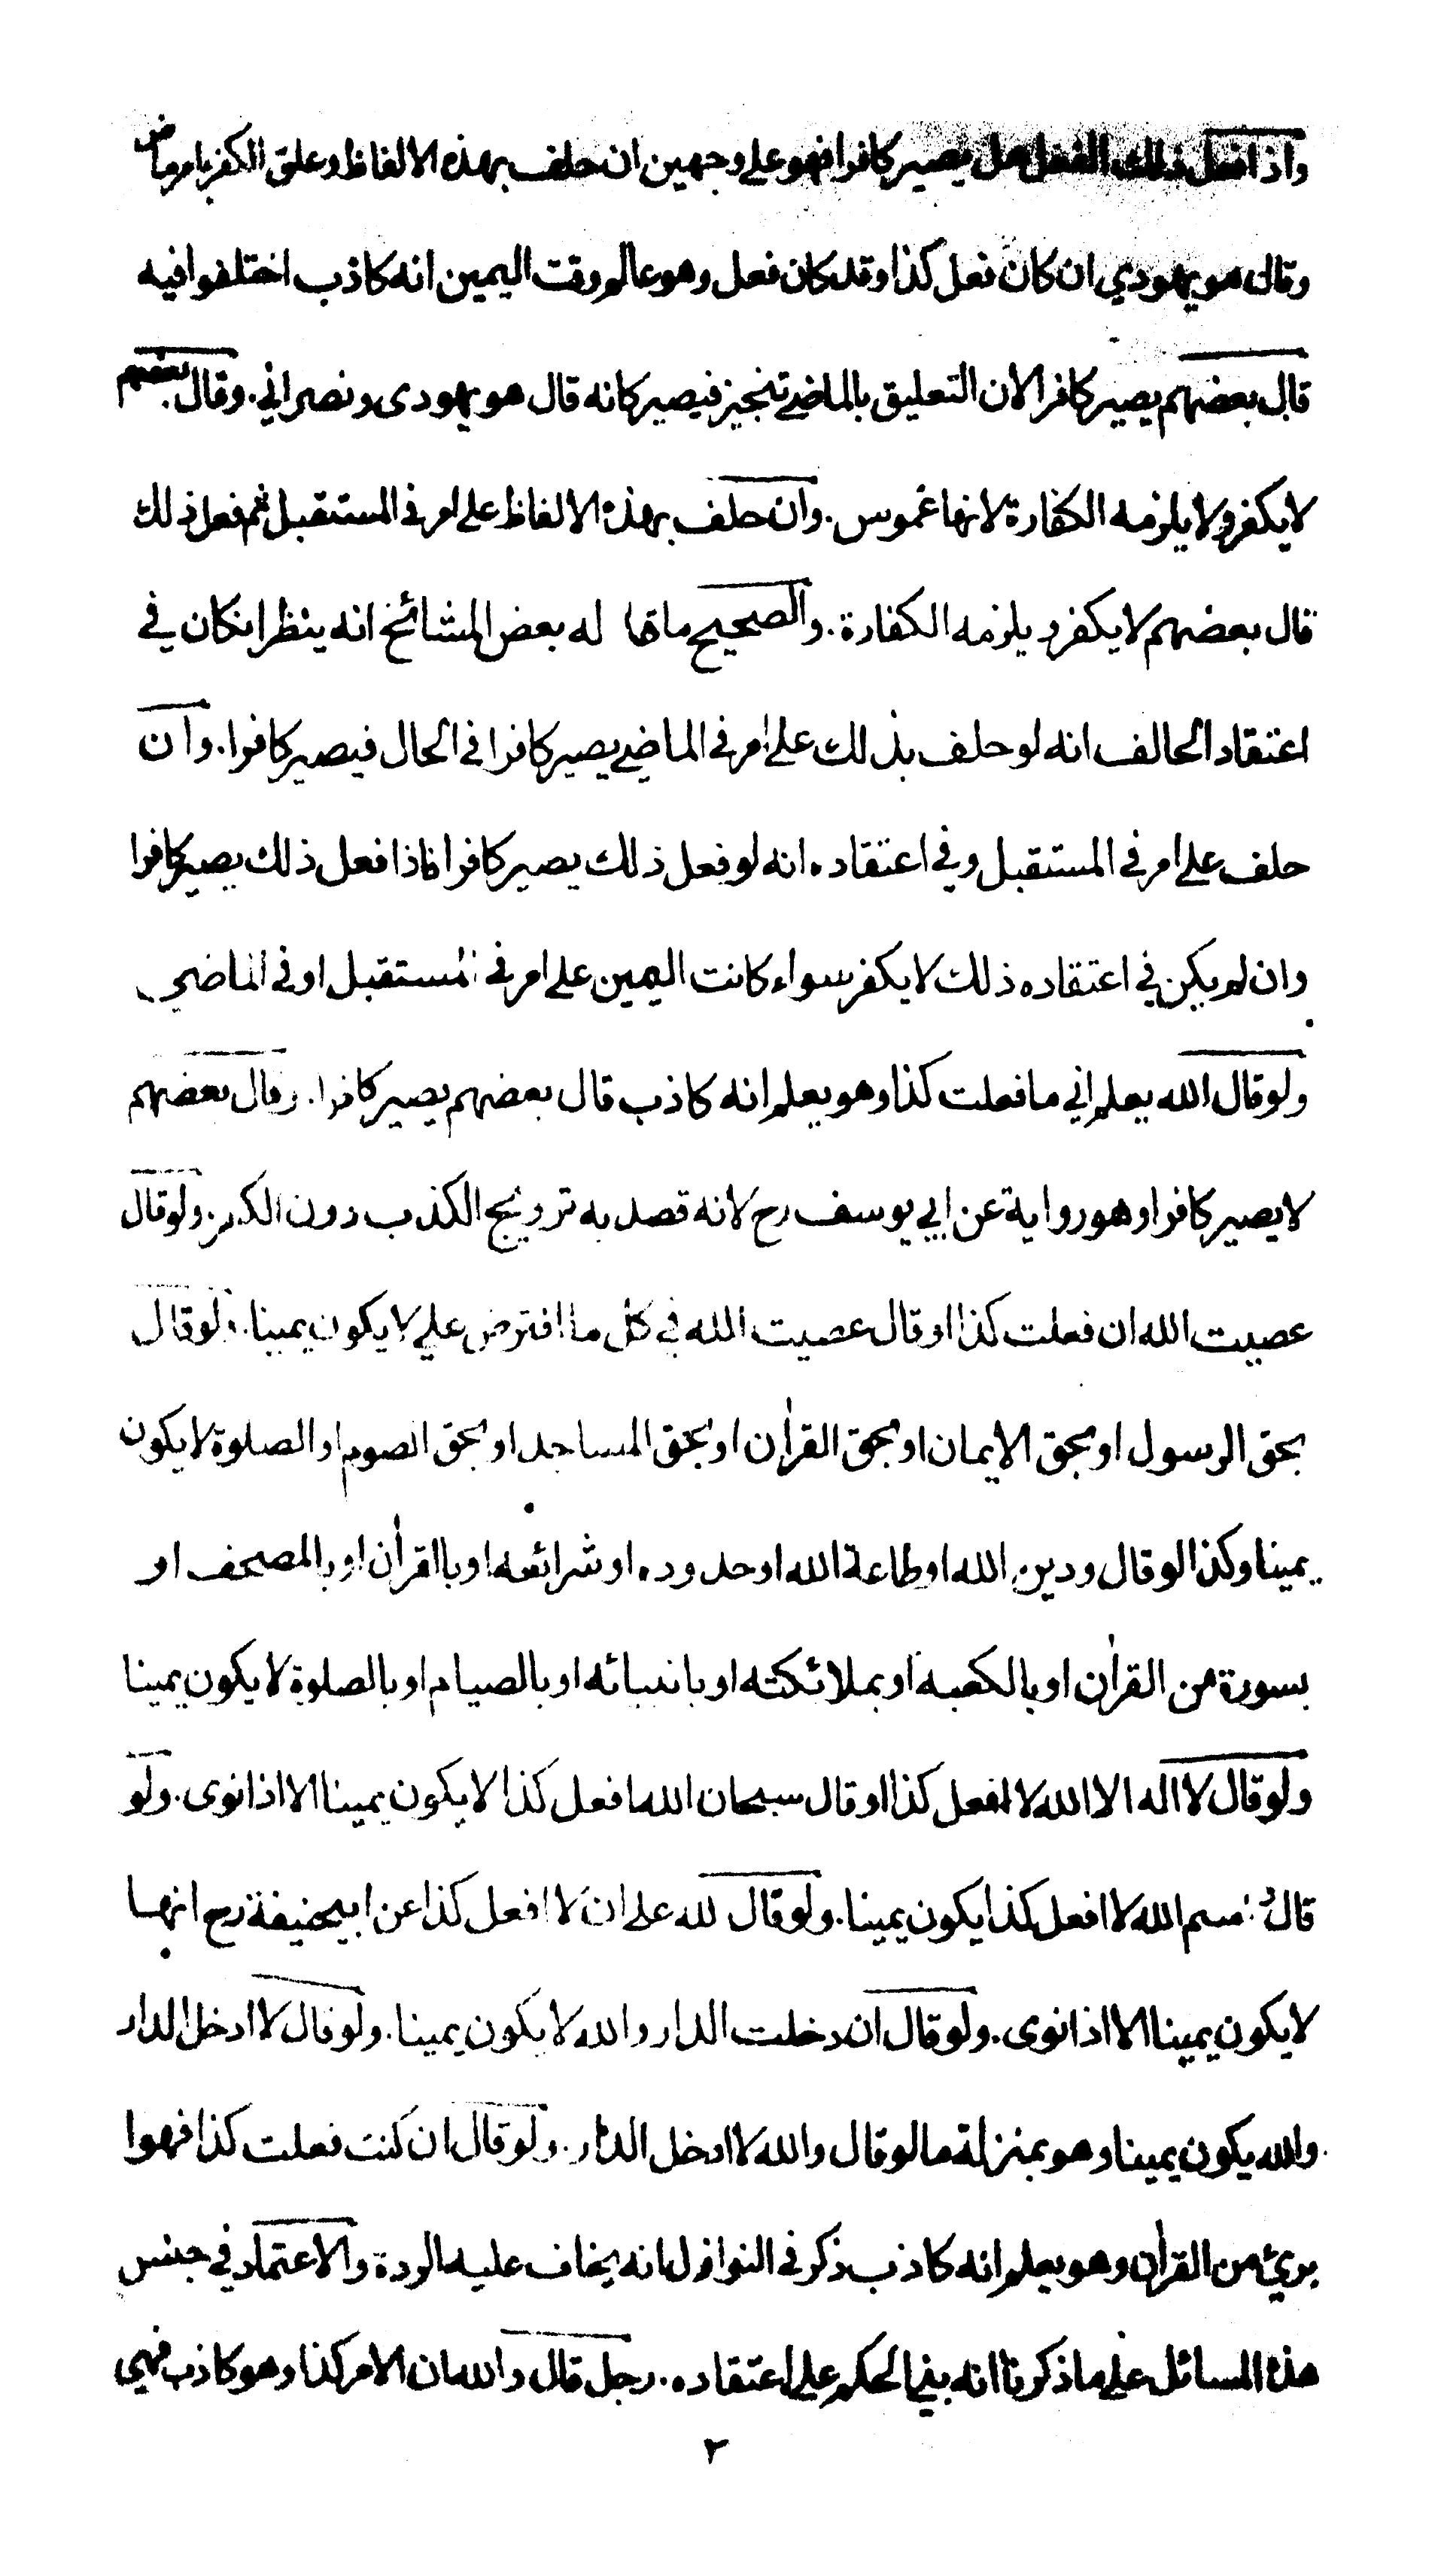 واذا فعل ذلك الفعل هل يصير كافرا فهو على وجهين ان حلف بهذه الالفاظ وعلق الكفر بامر ماض
وقال هو يهودي ان كان فعل كذا وقد كان فعل وهو عالم وقت اليمين انه كاذب اختلفوا فيه
قال بعضهم يصير كافرا لان التعليق بالماضي تنجيز فيصير كانه قال هو يهودى ونصراني. وقال بعضهم
لا يكفر ولا يلزمه الكفارة لانها غموس. وان حلف بهذه الالفاظ على امر في المستقبل ثم فعل ذلك
قال بعضهم لا يكفر ويلزمه الكفارة. والصحيح ما قا له بعض المشائخ انه ينظر انكان في
اعتقاد الحالف انه لو حلف بذلك على امر في الماضي يصير كافرا في الحال فيصير كافرا. وان
حلف على امر في المستقبل وفي اعتقاده انه لو فعل ذلك يصير كافرا فاذا فعل ذلك يصير كافرا
وان لم يكن في اعتقاده ذلك لا يكفر سواء كانت اليمين على امر في المستقبل او في الماضي
ولو قال الله يعلم اني ما فعلت كذا وهو يعلم انه كاذب قال بعضهم يصير كافرا. وقال بعضهم
لا يصير كافرا وهو رواية عن ابي يوسف رح لانه قصد به ترويج الكذب دون الكفر. ولو قال
عصيت الله ان فعلت كذا او قال عصيت الله في كل ما افترض علي لا يكون يمينا. ولو قال
بحق الرسول او بحق الايمان او بحق القرأن او بحق المساجد او بحق الصوم او الصلوة لا يكون
يمينا وكذا لو قال ودين الله او طاعة الله او حدوده او شرائعه او باالقرأن او بالمصحف او
بسورة من القرأن او بالكعبة او بملائكته او بانبيائه او بالصيام او بالصلوة لا يكون يمينا
ولو قال لا اله الا الله لا افعل كذا او قال سبحان الله ما فعل كذا لا يكون يمينا الا اذا نوى. ولو
قال بسم الله لا افعل كذا يكون يمينا. ولو قال لله على ان لا افعل كذا عن ابيحنيفة رح انها
لا يكون يمينا الا اذا نوى. ولو قال ان دخلت الدار والله لا يكون يمينا. ولو قال لا ادخل الدار
والله يكون يمينا وهو بمنزلة ما لو قال والله لا ادخل الدار. ولو قال ان كنت فعلت كذا فهوا
برئ من القرأن وهو يعلم انه كاذب ذكر في النوازل انه يخاف عليه الردة والاعتماد في جنس
هذه المسائل على ما ذكرنا انه يبني الحكم على اعتقاده. رجل قال والله ان الامر كذا وهو كاذب فهي
٢